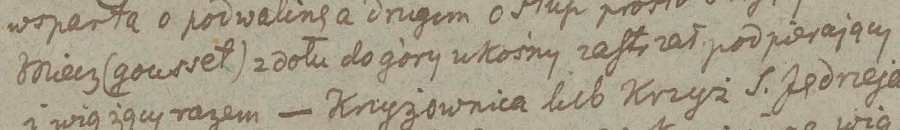 wsparta o podwalinę a drugim o słup prosto
Miecz (gousset) z dołu do góry ukośny zastrzał podpierający
i wiążący razem — Krzyżownica lub Krzyż S. Jędrzeja